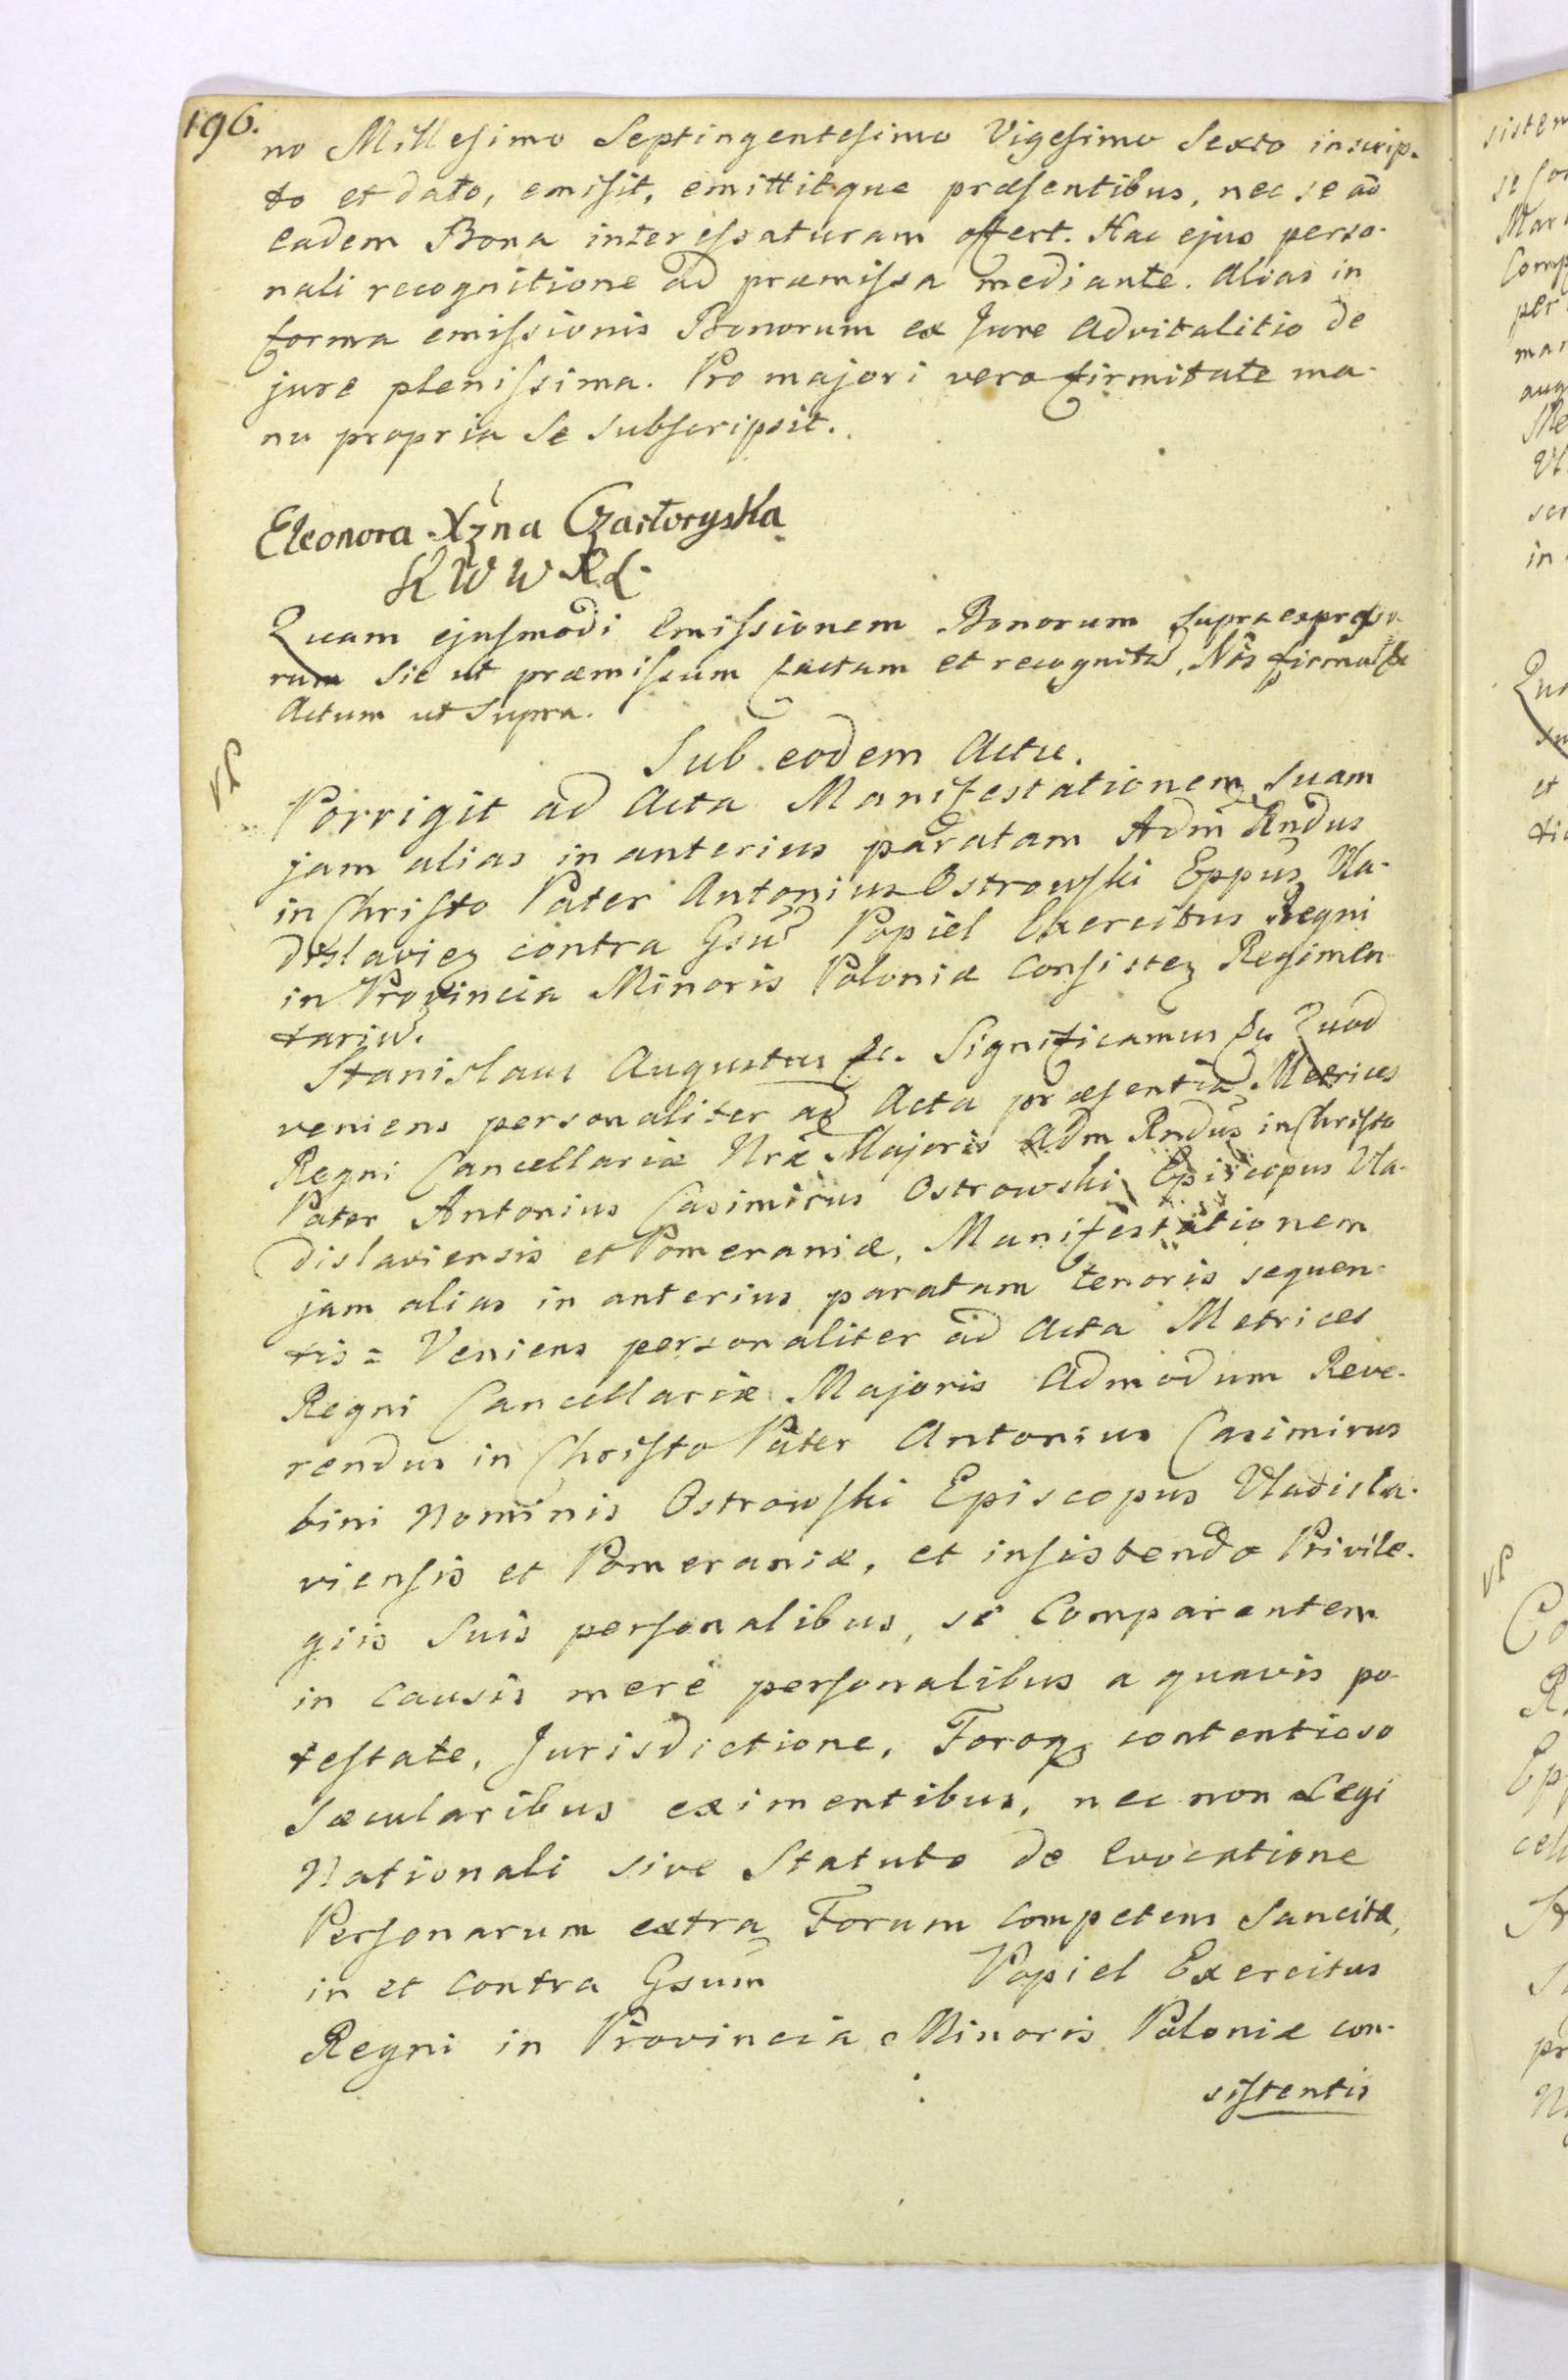 196.
no Millesimo Septingentesimo Vigesimo Sexto inscrip-
to et dato, emisit, emittitque præsentibus, nec se ad
eadem Bona interessaturam offert. Hac ejus perso-
nali recognitione ad præmissa mediante. Alias in
forma emissionis Bonorum ex Jure Advitalitio de
jure plenissima. Pro majori vero firmitate ma-
nu propria se subscripsit.
Eleonora Xżna Czartoryska
K W W X L
Quam ejusmodi Emissionem Bonorum supra expresso-
rum sic ut præmissum factum et recognitū, Nos
Actum ut supra.
Sub eodem Actu.
VP
Porrigit ad Acta Manifestationem suam
jam alias in anterius paratam Adm Rndus
in Christo Pater Antonius Ostrowski Eppus Vla-
dislavieņ contra Gsū Popiel Exercitus Regni
in Provincia Minoris Poloniæ Consisteņ Regimen-
tariū.
Stanislaus Augustus &c. Significamus &c Quod
veniens personaliter ad Acta præsentia Metrices
Regni Cancellariæ Nræ Majoris Adm Rndus in Christo
Pater Antonius Casimirus Ostrowski Episcopus Vla-
dislaviensis et Pomeraniæ, Manifestationem
jam alias in anterius paratam tenoris sequen-
tis = Veniens personaliter ad Acta Metrices
Regni Cancellariæ Majoris Admodum Reve-
rendus in Christo Pater Antonius Casimirus
bini Nominis Ostrowski Episcopus Vladisla-
viensis et Pomeraniæ, et insistendo Privile-
giis suis personalibus, se Comparentem
in causis merè personalibus a quavis po-
testate, Jurisdictione, Foroq; contentioso
sæcularibus eximentibus, nec non Legi
Nationali sive Statuto de Evocatione
Personarum extra Forum competens Sancita,
in et contra Gsum Popiel Exercitus
Regni in Provincia Minoris Poloniæ con-
sistentis